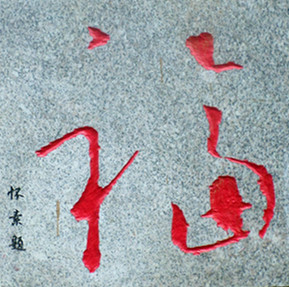 福
怀素题